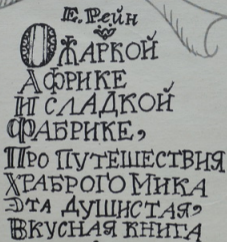 Е. Рейн
О ЖАРКОЙ
АФРИКЕ
И СЛАДКОЙ
ФАБРИКЕ,
ПРО ПУТЕШЕСТВИЯ
ХРАБРОГО МИКА
ЭТА ДУШИСТАЯ,
ВКУСНАЯ КНИГА